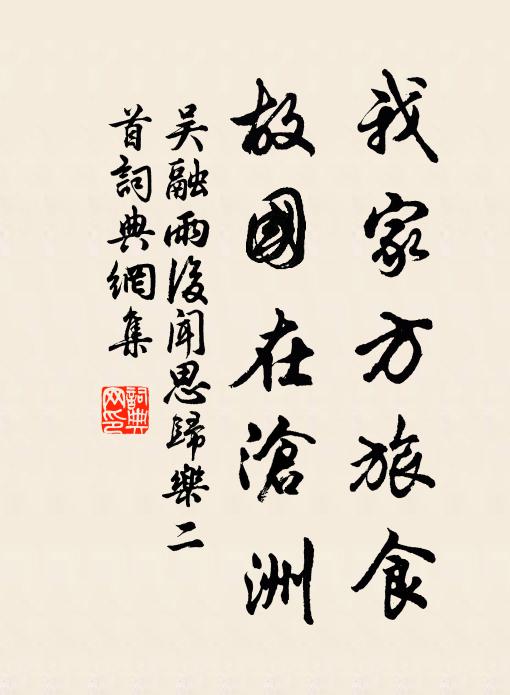 我家方旅食
故國在滄洲
吴融雨後聞思歸樂二
首詞典網集
詞典网印